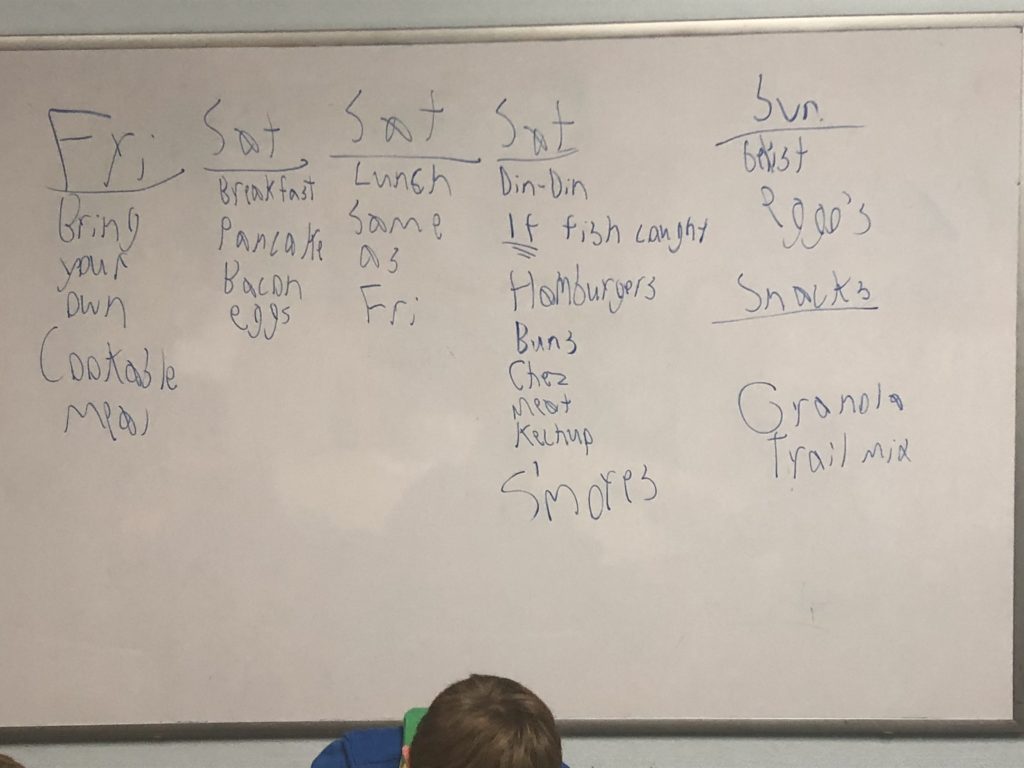 Fri
Bring
your
own
Cookable
Meal
Sat
Breakfast
Pancake
Bacon
eggs
Sat
Lunch
Same
as
Fri
Sat
Din-Din
If fish caught
Hamburgers
Buns
Chez
Meat
Kechup
S'mores
Sun.
eggo's
Snacks
Granola
Trail mix